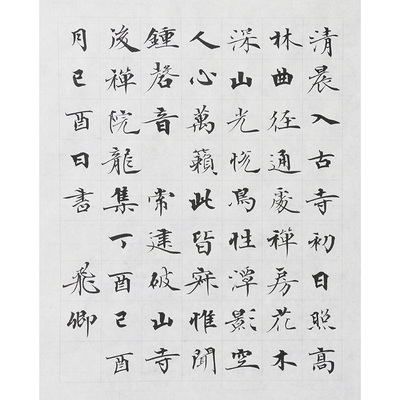 清晨入古寺初日照高
林曲径通處禪房花木
深山光悦鳥性潭影空
人心萬籟此皆寂惟聞
鍾磬音 常建破山寺
後禪院龍集丁酉己酉
月己酉日書 飛卿